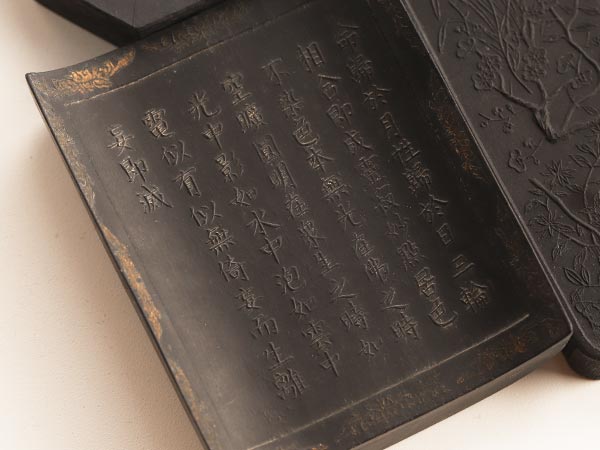 命歸於月性歸於日三輪
相合即成靈液妙照圖色
不染色本無光雀鴨之時
空曠圓明雀眾生之時如
光中影如水中泡如雲中
電似有似無倚妄而生離
妄即滅